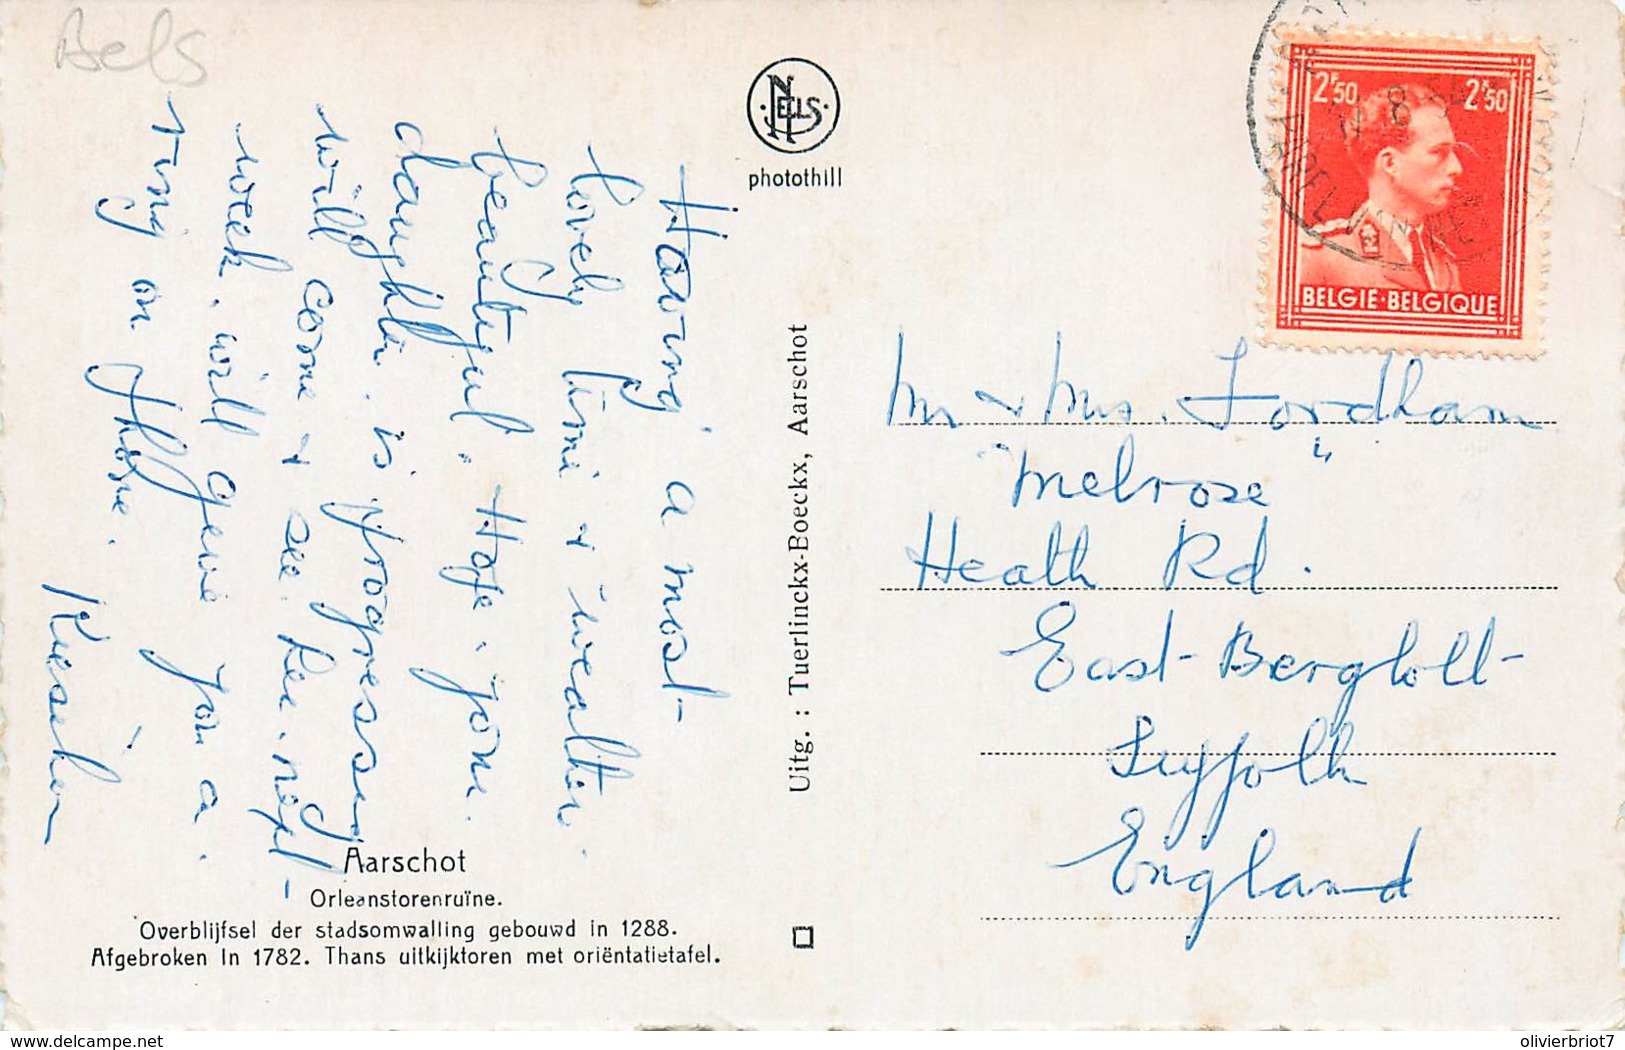 Bels
Having a most
lovely time & weather
beautiful. Hope your
daughter is progressing
will come & see her next
week, will give you a
ring on phone.
NELS
photothill
Uitg. : Tuerlinckx-Boeckx, Aarschot
Aarschot
Orleanstorenruïne.
Overblijfsel der stadsomwalling gebouwd in 1288.
Afgebroken in 1782. Thans uitkijktoren met oriëntatietafel.
2F50 2F50
BELGIE·BELGIQUE
Mr & Mrs. Fordham
"Melrose"
Heath Rd.
East Bergholt
Suffolk
England
delcampe.net
olivierbriot7